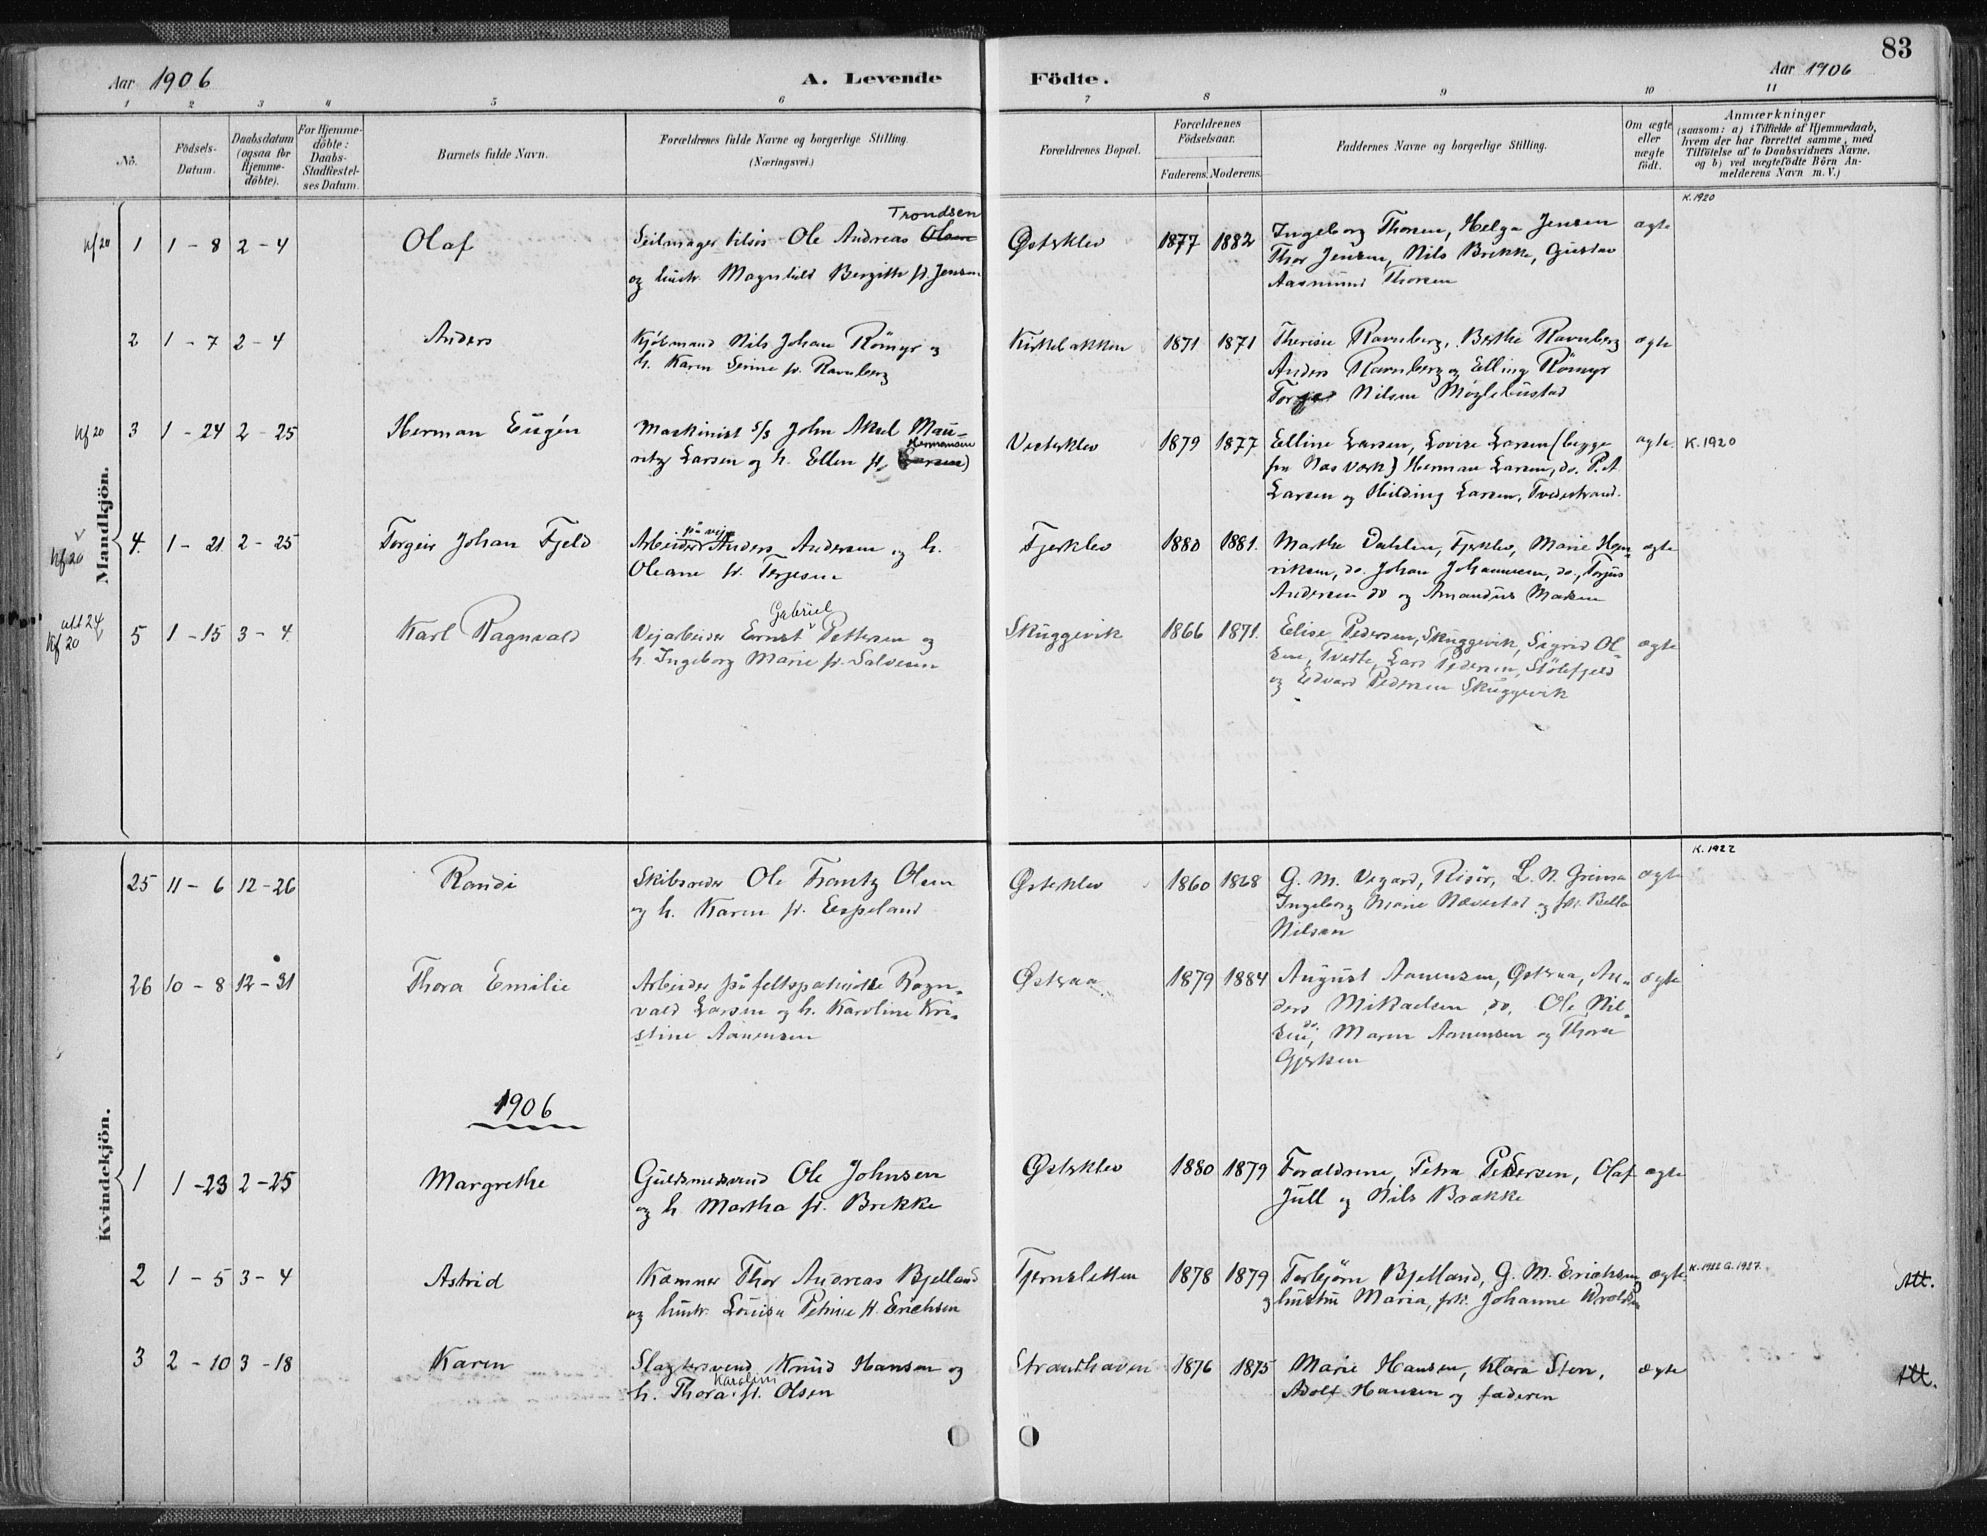 83
Aar 1906
A. Levende
Födte.
Aar 1906
1 2 3 4 5 6 7 8 9 10 11
No.
Födsels-
Datum.
Daabsdatum
(ogsaa for
Hjemme-
döbte).
For Hjemme-
döbte:
Daabs-
Stadfæstel-
ses Datum.
Barnets fulde Navn.
Forældrenes fulde Navne og borgerlige Stilling.
(Næringsvei.)
Forældrenes Bopæl.
Forældrenes
Födselsaar.
Faderens. Moderens.
Faddernes Navne og borgerlige Stilling.
Om ægte
eller
uægte
födt.
Anmærkninger
(saasom: a) i Tilfælde af Hjemmedaab,
hvem der har forrettet samme, med
Tilföielse af to Daabsvidners Navne,
og b) ved uægtefödte Börn An-
melderens Navn m. V.)
Mandkjön.
Kf 20 1 1 - 8 2 - 4 Olaf
Trondsen
Seilmager Ole Andreas Olsen
og hustr Magnhild Bergitte f. Jensen
Østeklev 1877 1882
Ingeborg Thorsen, Helga Jensen
Thor Jensen, Nils Brekke, Gustav
Aasmund Thorsen
ægte K. 1920
2 1 - 7 2 - 4 Anders
Kjøbmand Nils Johan Römyr og
h. Karen Serine f. Ravnberg
Kirkebakken 1871 1871
Therese Ravnberg, Berthe Ravnberg
Anders Ravnberg og Elling Römyr
Nilsen Møglebustad
ægte
Kf 20 3 1 - 24 2 - 25 Herman Eugén
Maskinist s/s John Aksel Mau-
ritz Larsen og h. Ellen f. Larsen)
Hermansen
Vesterklev 1879 1877
Elline Larsen, Lovise Larsen (begge
fra Nas Værk) Herman Larsen, do. P. A.
Larsen og Hilding Larsen, Tvedestrand.
ægte. K. 1920
Kf 20 4. 1 - 21. 2 - 25 Torgeir Johan Fjeld
på veje
Arbeider Anders Andersen og h.
Oleane f. Terjesen
Fjerklev 1880 1881.
Marthe Dahlen, Fjerklev, Marie Hen-
riksen, do. Johan Johannesen, do., Terjus
Andersen do og Amandus Madsen
ægte
att 24
Kf 20 5 1 - 15 3 - 4. Karl Ragnvald
Gabriel
Vejarbeider Ernst Pettersen og
h. Ingeborg Marie f. Salvesen
Skuggevik 1866 1871.
Elise Pedersen, Skuggevik, Sigrid Ol-
sen, Tvedte, Lars Pedersen, Stölefjeld
og Edvard Pedersen Skuggevik
ægte
Kvindekjön.
25 11 - 6 12 - 26 Randi
Skibsreder Ole Frantz Olsen
og h. Karen f. Espeland
Østeklev 1860 1868
G. M. Vegard, Risör, L. N. Greima
Ingeborg Marie Nævestad og frk. Bella
Nilsen
ægte K. 1922
26 10 - 8 12 - 31 Thora Emilie
Arbeider på feltspatbrudte Ragn-
vald Larsen og h. Karoline Kri-
stine Aanensen
Østeraa 1879 1884
August Aanensen, Østeraa, An-
ders Mikaelsen do. Ole Nil-
sen, do, Maren Aanensen og Thora
Gjersen
ægte
1906
1 1 - 23 2 - 25 Margrethe
Guldsmedsvend Ole Johnsen
og h. Martha f. Brekke
Østeklev 1880 1879
Forældrene, Petra Pedersen, Olaf
Jull og Nils Brække
ægte
2 1 - 5 3 - 4 Astrid
Kæmner Thor Andreas Bjelland
og hustr. Louisa Petrine f. Erichsen
Tjernsletten 1878 1879
Torbjørn Bjelland, G. M. Erichsen
og hustru Maria, frk. Johanne
ægte K. 1922 G. 1927. Att.
3 2 - 10 3 - 18 Karen
Slagtersvend Knud Hansen og
Karoline
h. Thora f. Olsen
Strandhaven 1876 1875
Marie Hansen, Klara Sten,
Adolf Hansen og faderen
ægte Att.